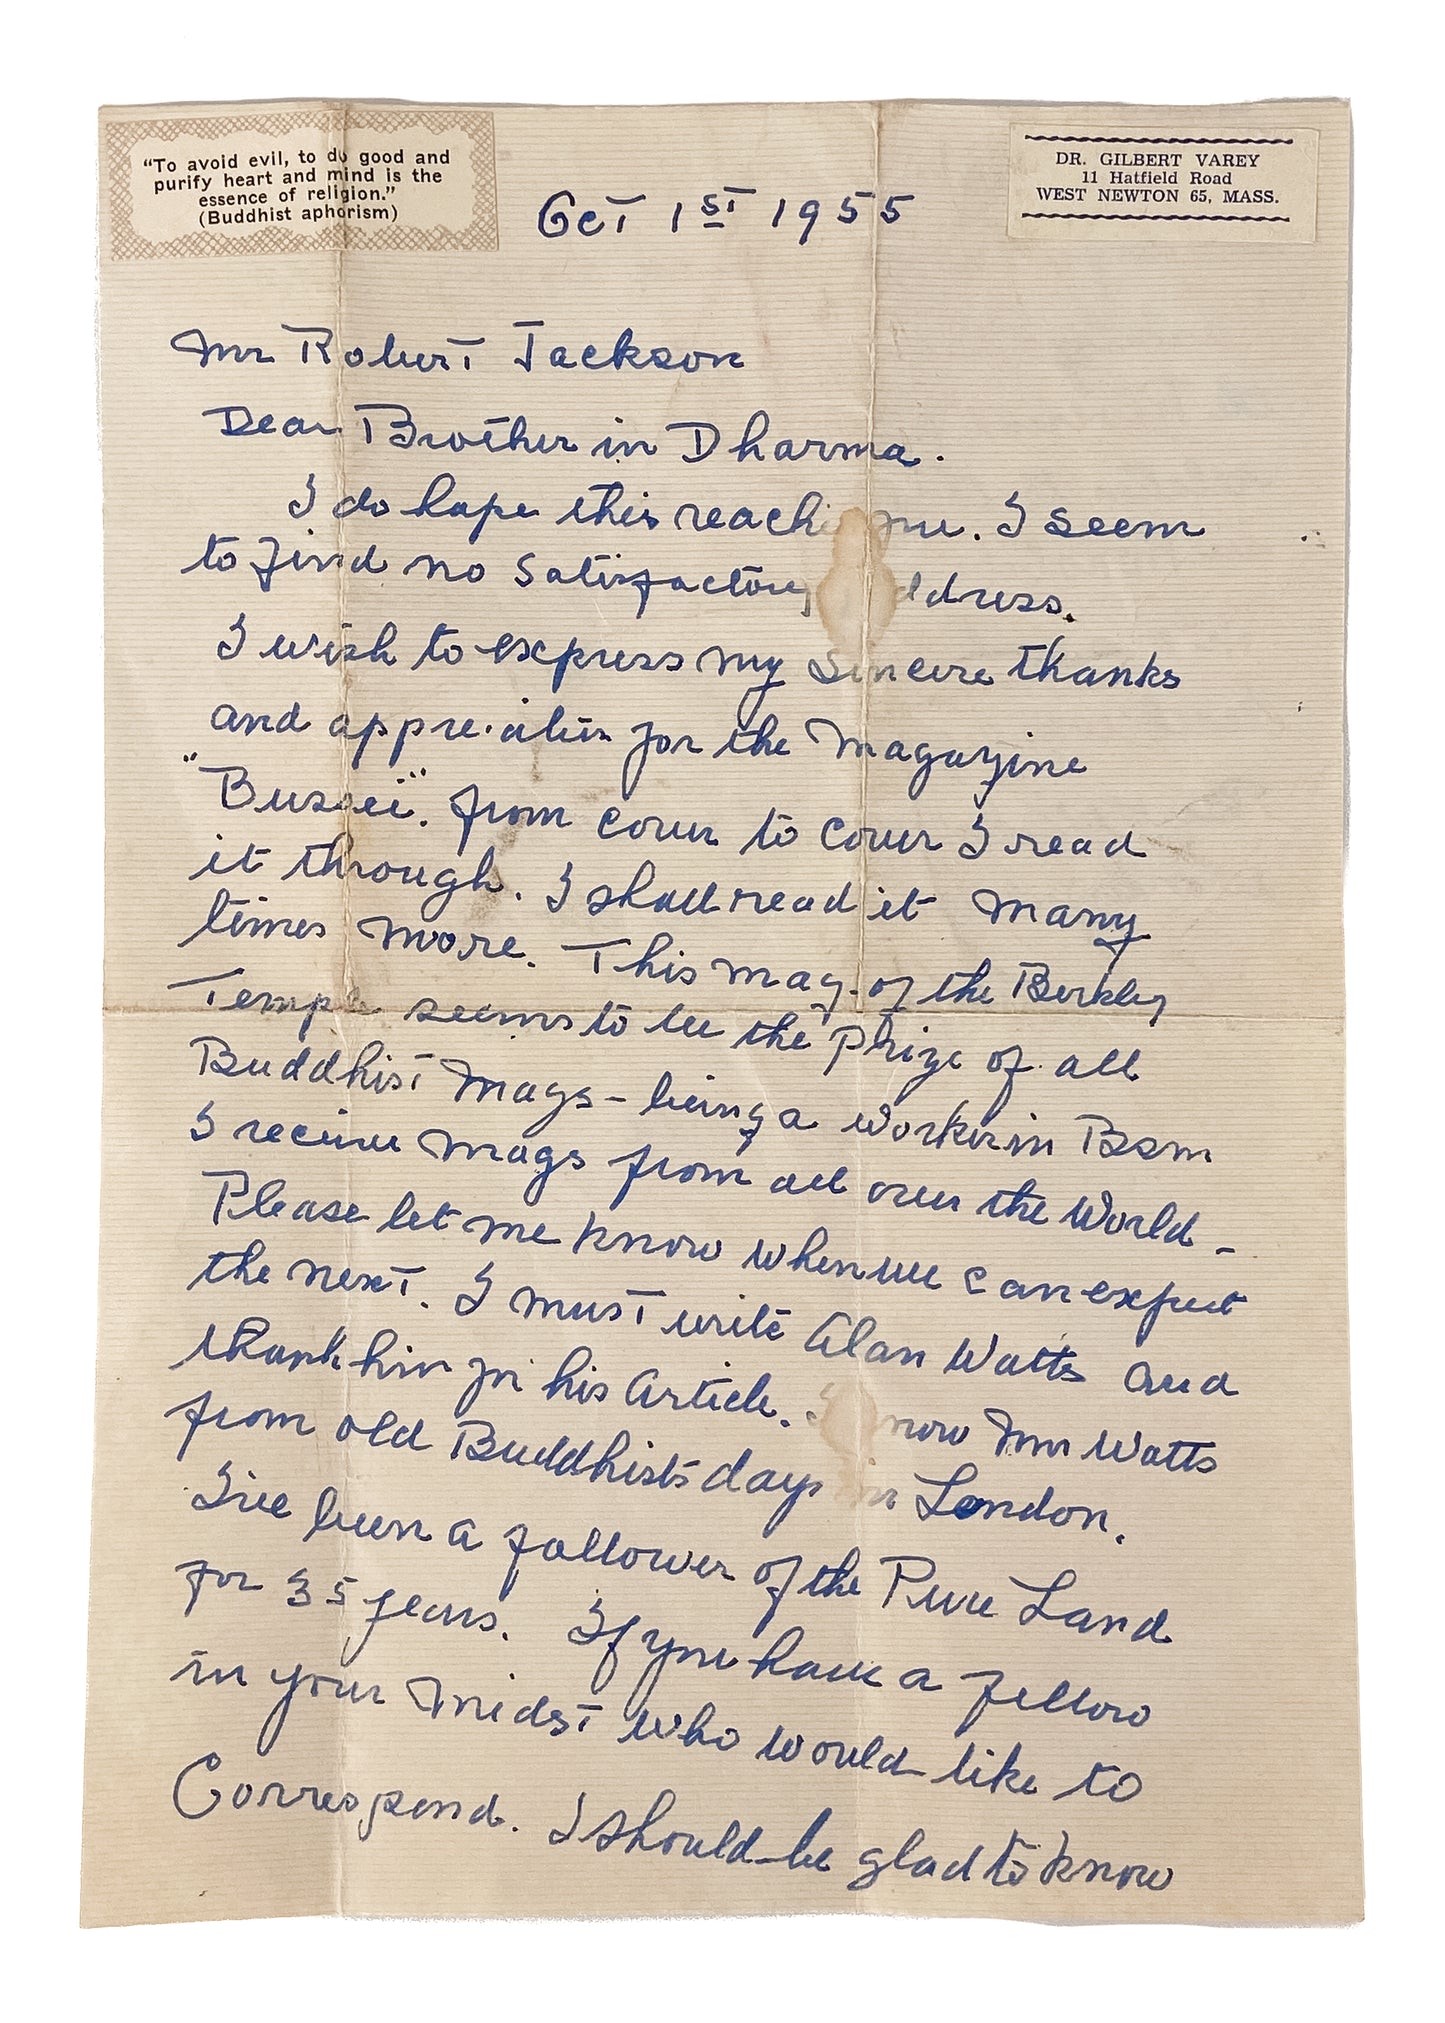 "To avoid evil, to do good and
purify heart and mind is the
essence of religion."
(Buddhist aphorism)
DR. GILBERT VAREY
11 Hatfield Road
WEST NEWTON 65, MASS.
Oct 1st 1955
Mr Robert Jackson
Dear Brother in Dharma.
I do hope this reach you. I seem
to find no satisfactory address.
I wish to express my sincere thanks
and appreciation for the Magazine
"Bussei". from cover to cover I read
it through. I shall read it many
times more. This mag. of the Berkley
Temple seems to be the Prize of all
Buddhist Mags - being a worker in Bsm
I receive mags from all over the World -
Please let me know when we can expect
the next. I must write Alan Watts and
thank him for his Article. I know Mr Watts
from old Buddhists days in London.
I've been a follower of the Pure Land
for 35 years. If you have a fellow
in your midst who would like to
Correspond. I should be glad to know